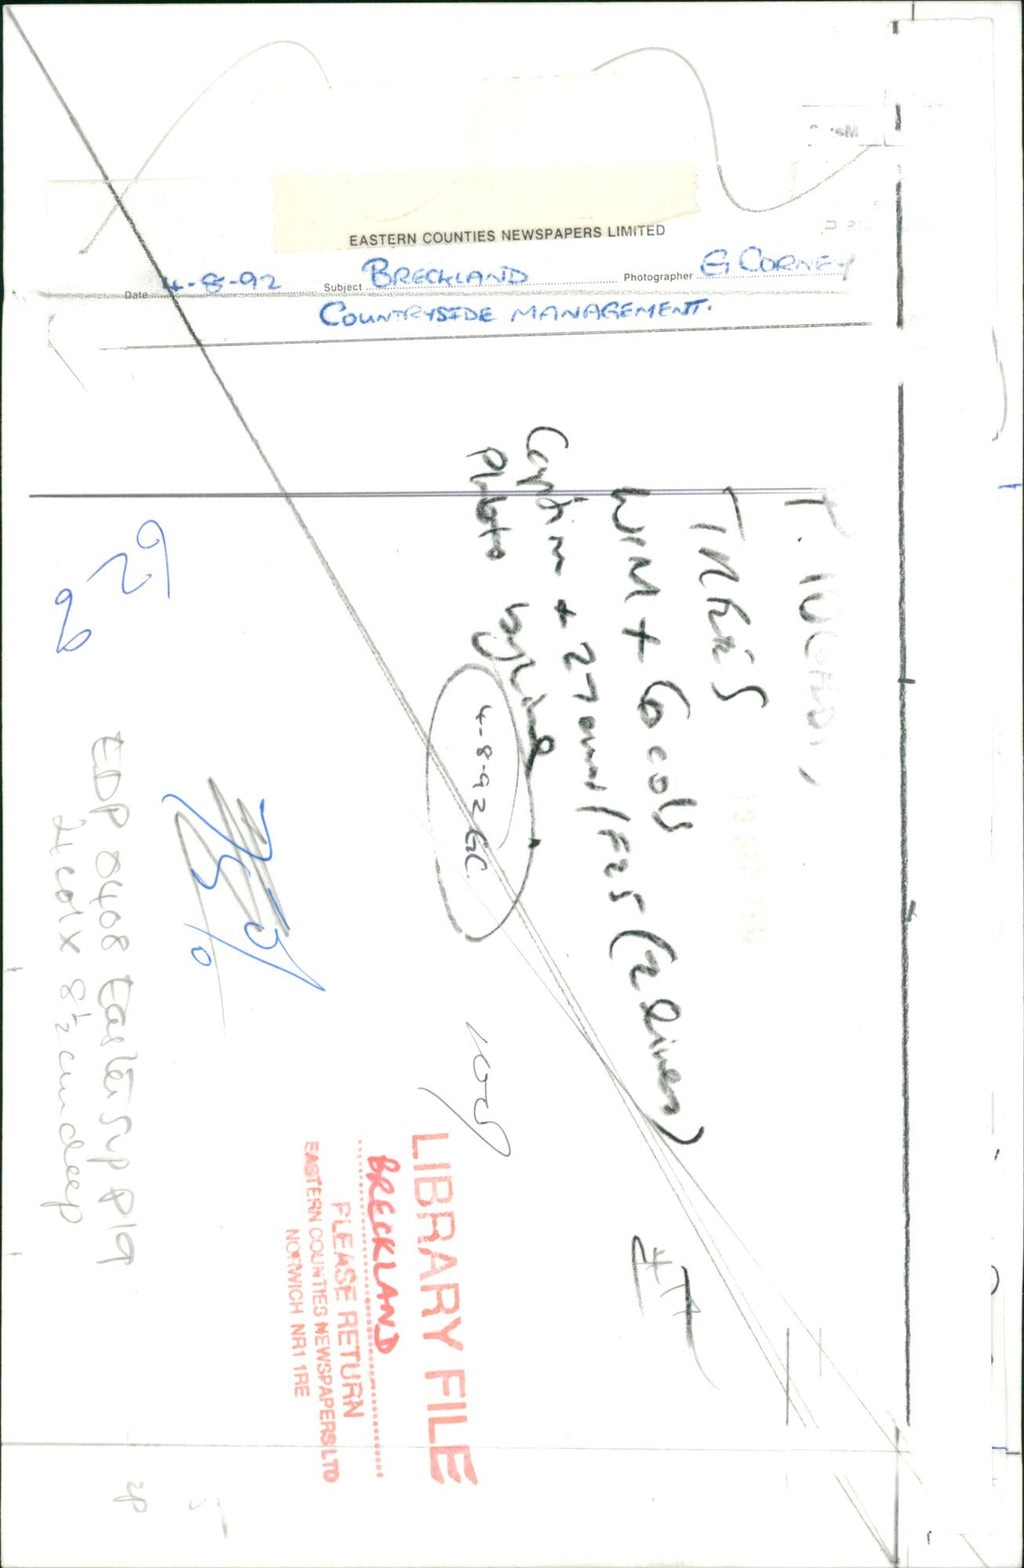 EASTERN COUNTIES NEWSPAPERS LIMITED
Date 4-8-92 Subject BRECKLAND Photographer G CORNEY
COUNTRYSIDE MANAGEMENT.
T.
TREES
WM + 6 cols
Caption + 27 /F25 (2 lines)
Photo byline
4-8-92 GC
LIBRARY FILE
BRECKLAND
PLEASE RETURN
EASTERN COUNTIES NEWSPAPERS LTD
NORWICH NR1 1RE
75%
EDP 0408 Easter Sup P19
col x 8½ cm deep
2P